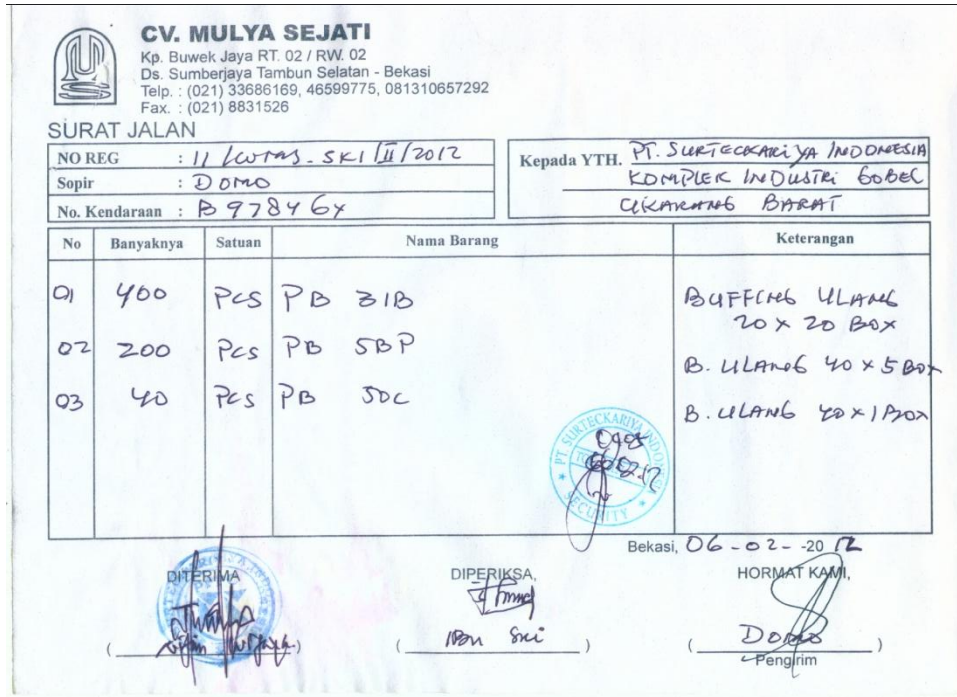 CV. MULYA SEJATI
Kp. Buwek Jaya RT. 02 / RW. 02
Ds. Sumberjaya Tambun Selatan - Bekasi
Telp. : (021) 33686169, 46599775, 081310657292
Fax. : (021) 8831526
SURAT JALAN
NO REG : 11 / - SKI / II / 2012
Sopir : DOMO
No. Kendaraan : B 9784 GY
Kepada YTH. PT. SURTECKARIYA INDONESIA
KOMPLEK INDUSTRI GOBEL
CIKARANG BARAT
No Banyaknya Satuan Nama Barang Keterangan
01 400 PCS PB 31B BUFFING ULANG
20 x 20 BOX
02 200 PCS PB 5BP B. ULANG 40 x 5 BOX
03 40 PCS PB 50C B. ULANG 40 x 1 BOX
PT. SURTECKARIYA INDONESIA
SECURITY
Bekasi, 06 - 02 - 20 12
DITERIMA DIPERIKSA, HORMAT KAMI,
( ) ( ) ( Domo )
Pengirim